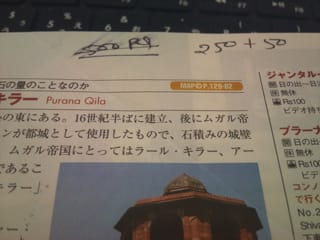 250 + 50
石の量のことなのか
MAP P.129-B2
キラー Purana Qila
の東にある。16世紀半ばに建立、後にムガル帝
ンが都城として使用したもので、石積みの城壁
ムガル帝国にとってはラール・キラー、アー
であるこ
キラー」
ジャンタル・
開 日の出〜日
休 無休
料 Rs100
ビデオ持ち
プラーナ
開 日の出
休 無休
料 Rs100
ビデ
コンノ
で行く
No.2
Sho